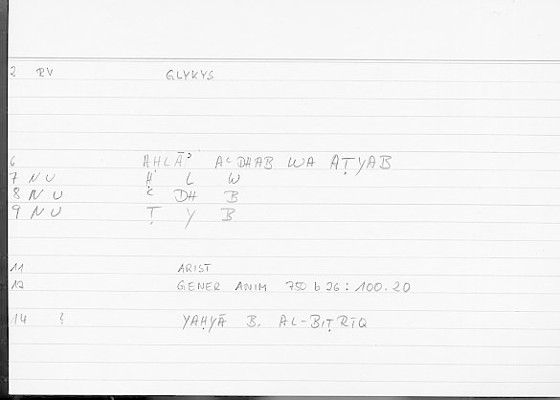 2 RV GLYKYS
6 AḤLĀʾ AʿDHAB WA AṬYAB
7 NU Ḥ L W
8 NU ʿ DH B
9 NU Ṭ Y B
11 ARIST
12 GENER ANIM 750 b 26 : 100.20
14 YAḤYĀ B. AL-BIṬRĪQ